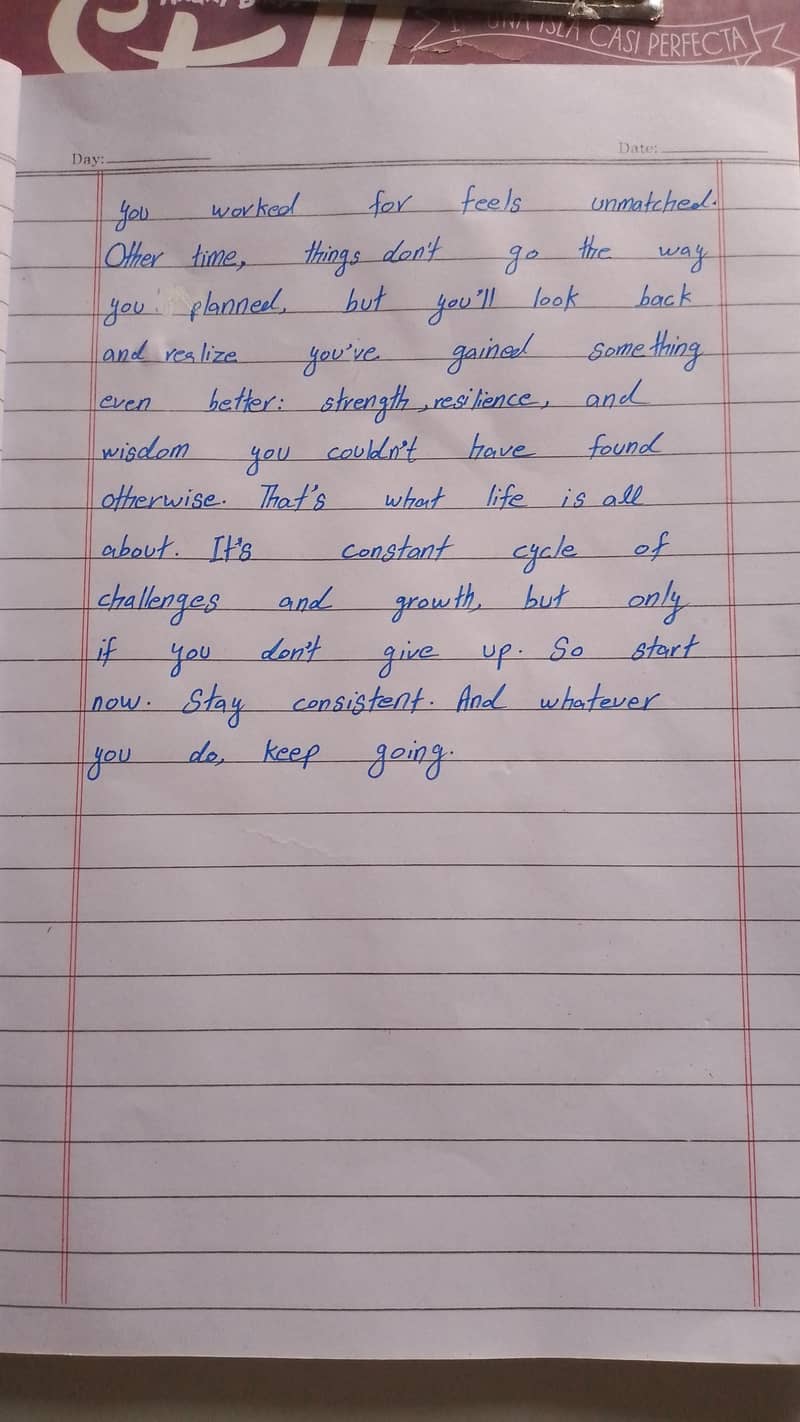 UNA ISLA CASI PERFECTA
Day:
Date:
you worked for feels unmatched.
Other time, things don't go the way
you planned, but you'll look back
and realize you've gained something
even better: strength, resilience, and
wisdom you couldn't have found
otherwise. That's what life is all
about. It's constant cycle of
challenges and growth, but only
if you don't give up. So start
now. Stay consistent. And whatever
you do, keep going.